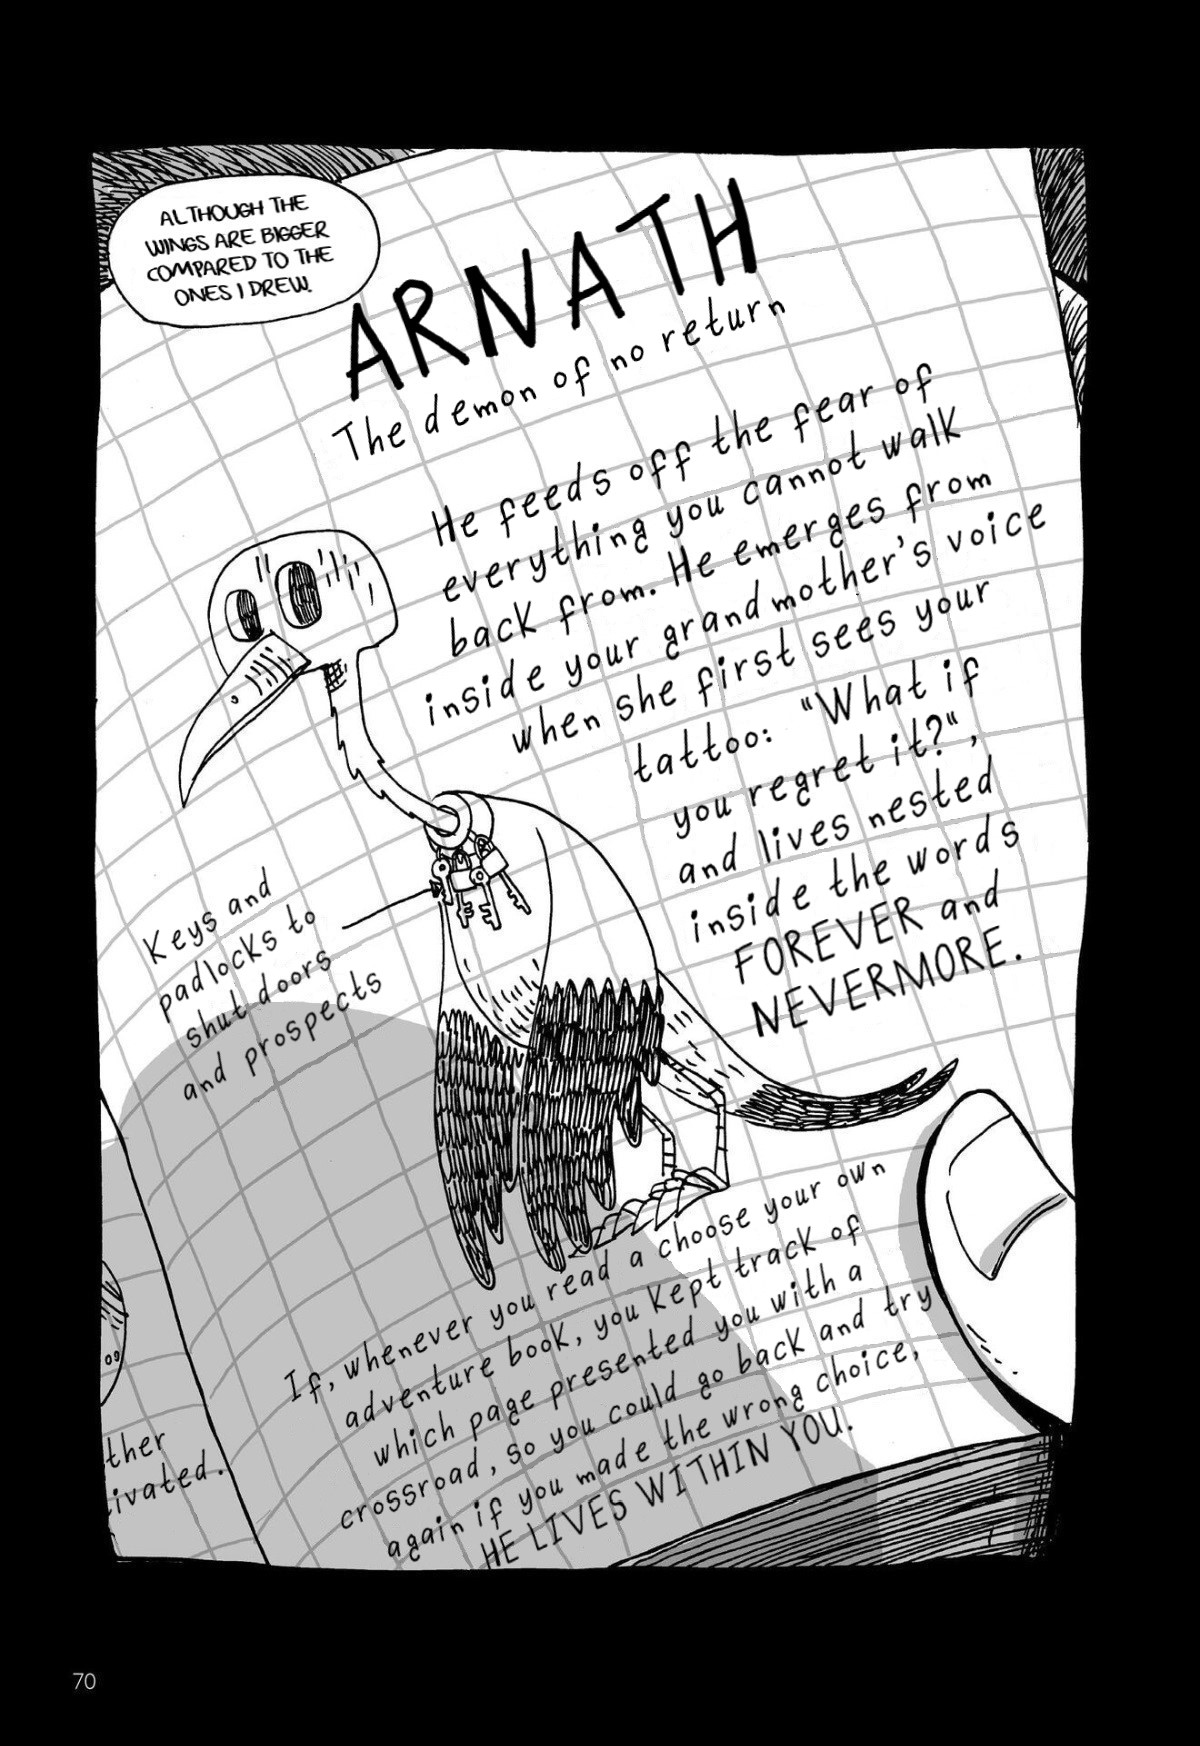 ALTHOUGH THE
WINGS ARE BIGGER
COMPARED TO THE
ONES I DREW.
ARNATH
The demon of no return
He feeds off the fear of
everything you cannot walk
back from. He emerges from
inside your grandmother's voice
when she first sees your
tattoo: "What if
you regret it?",
and lives nested
inside the words
FOREVER and
NEVERMORE.
Keys and
padlocks to
shut doors
and prospects
If, whenever you read a choose your own
adventure book, you kept track of
which page presented you with a
crossroad, so you could go back and try
again if you made the wrong choice,
HE LIVES WITHIN YOU.
ther
ivated.
70